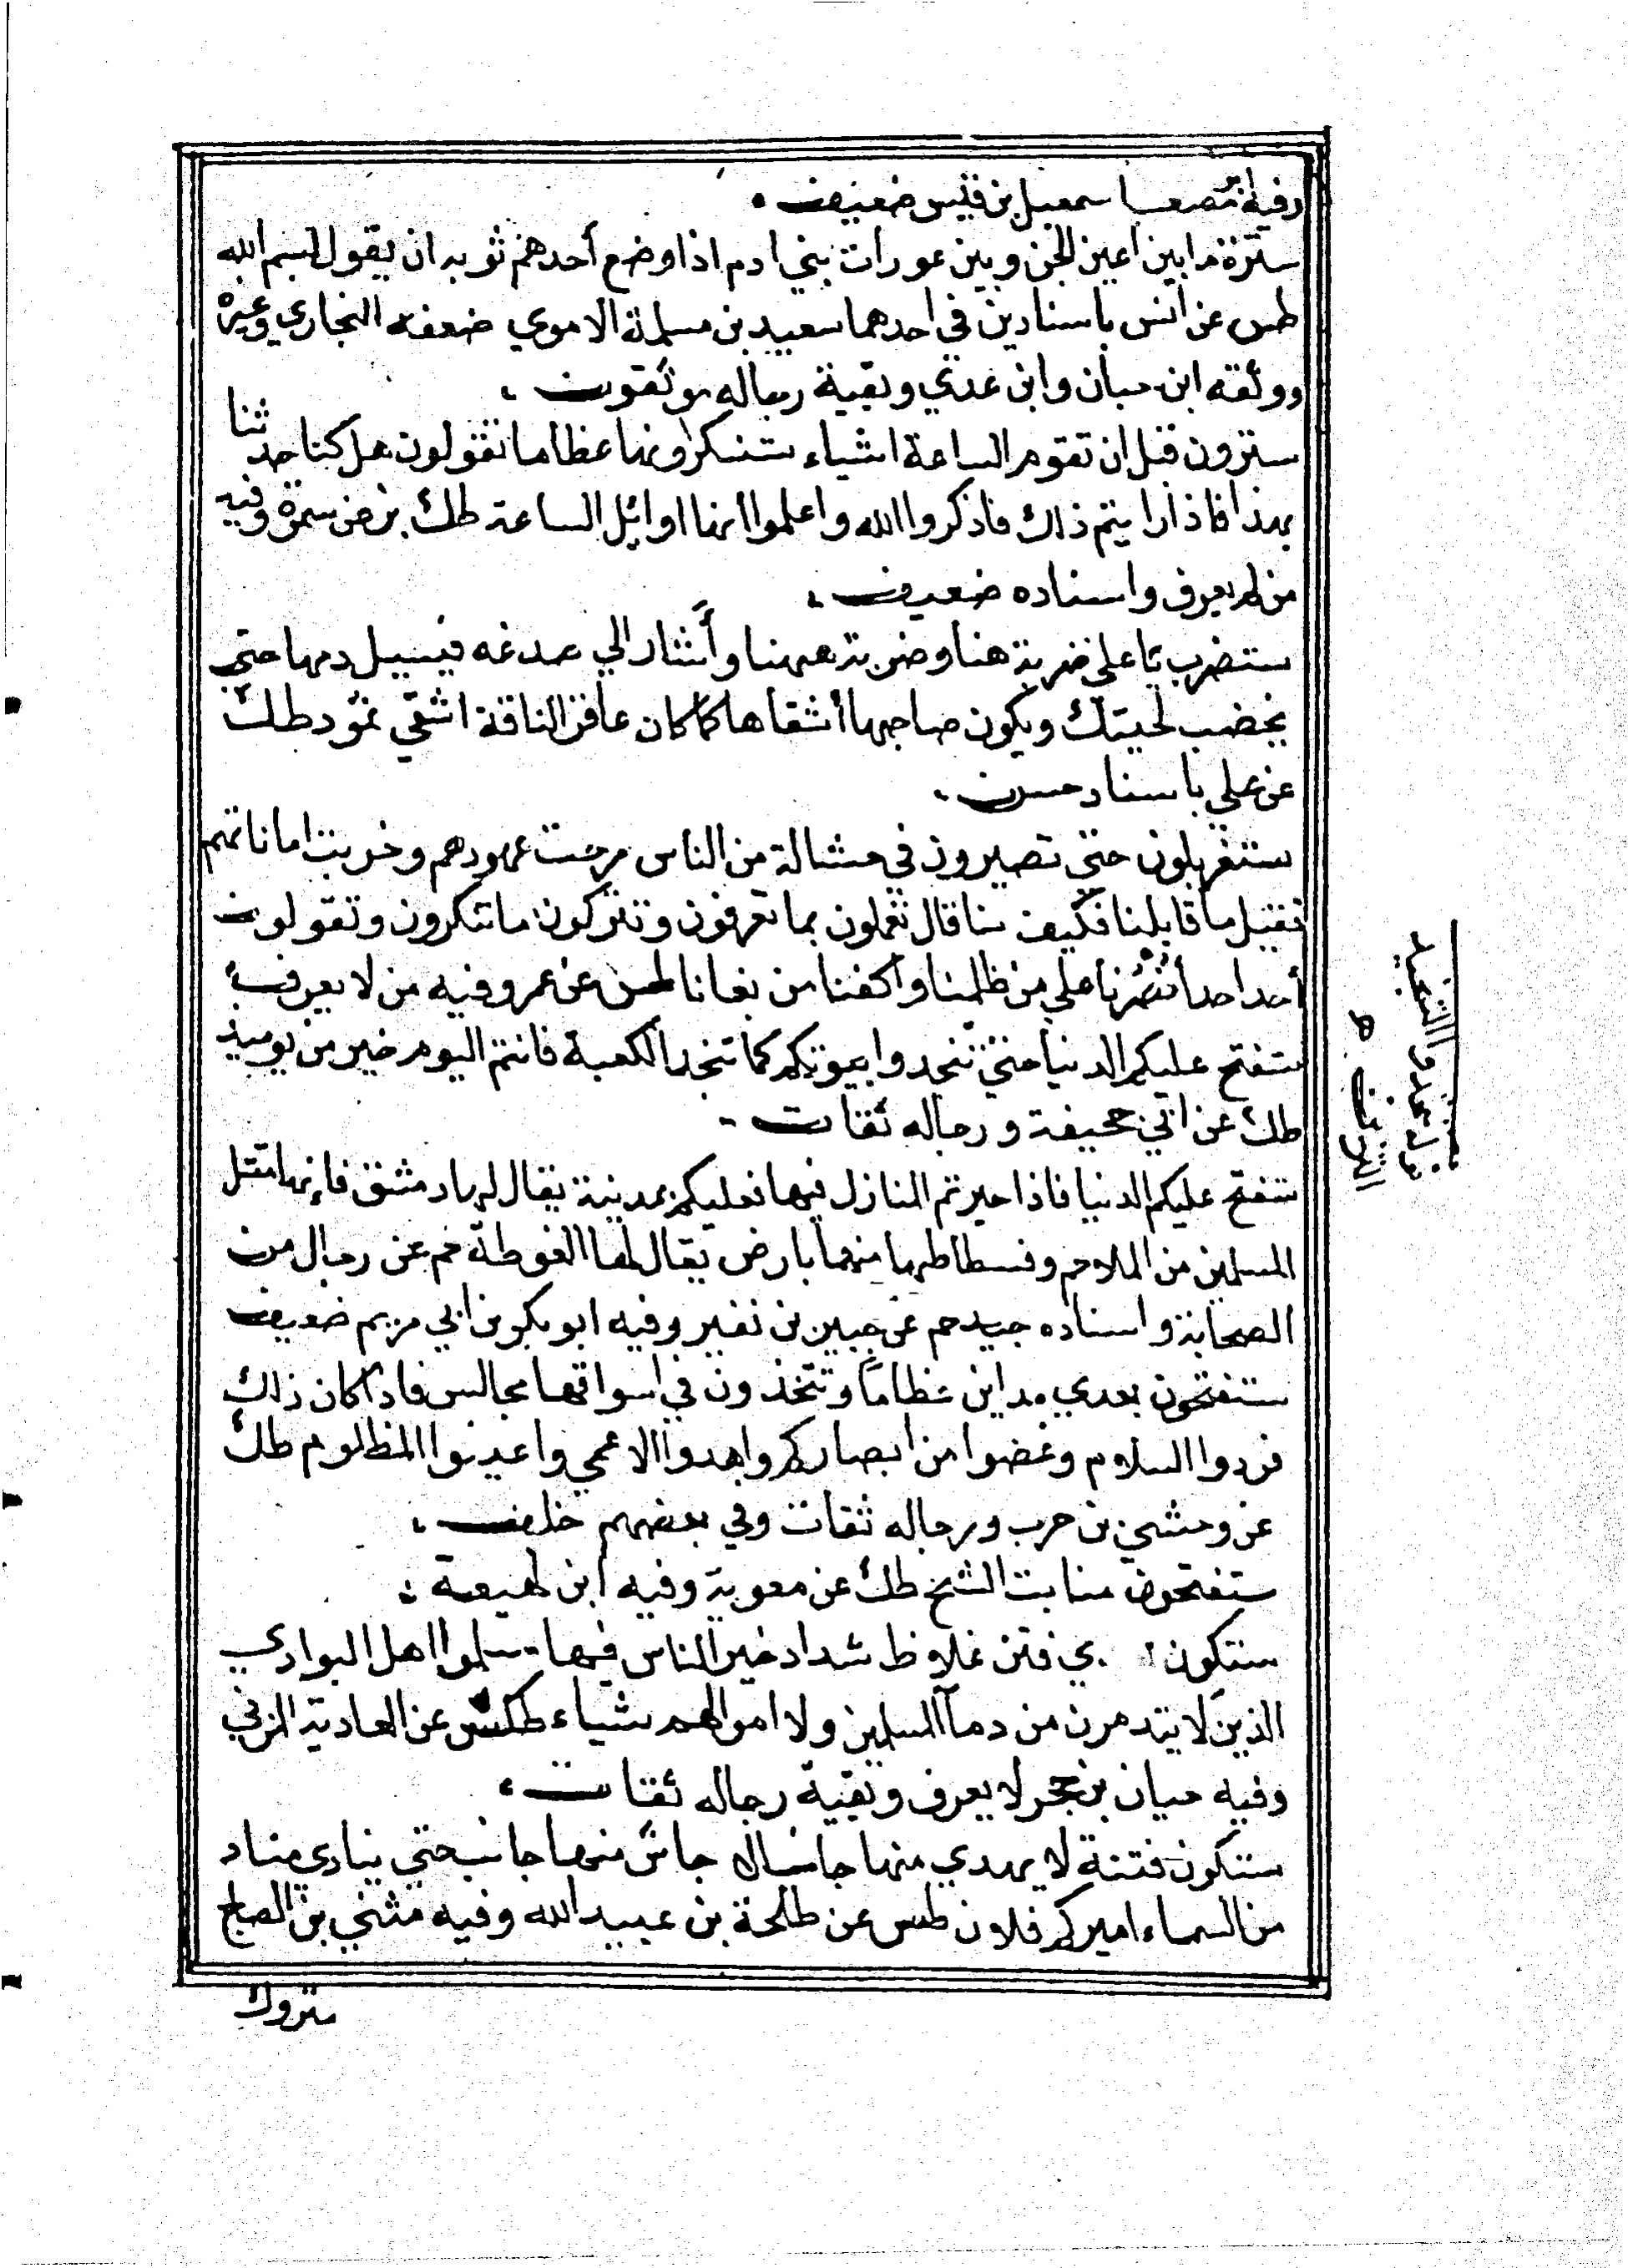 وفيه ابو مصعب اسمعيل بن قيس ضعيف .
سترة ما بين اعين الجن وبين عورات بني ادم اذا وضع أحدهم ثوبه ان يقول بسم الله
طس عن انس باسنادين في احدهما سعيد بن مسلمة الاموي ضعفه البخاري وغيره
ووثقه ابن حبان وابن عدي وبقية رجاله موثقون .
سترون قبل ان تقوم الساعة اشياء ستنكرونها عظاما تقولون هل كنا حدثنا
بهذا فاذا رايتم ذلك فاذكروا الله واعلموا انها اوائل الساعة طك بز عن سمرة وفيه
من لم يعرف واسناده ضعيف .
ستضرب يا علي ضربة هنا وضربة ههنا وأشار الي صدغه فيسيل دمها حتي
تخضب لحيتك ويكون صاحبها أشقاها كما كان عاقر الناقة اشقي ثمود طك
عن علي باسناد حسن .
ستغربلون حتي تصيرون في حثالة من الناس مرجت عهودهم وخربت اماناتهم
فقيل ما قايلنا فكيف بنا قال تعملون بما تعرفون وتتركون ما تنكرون وتقولون
أحد احد أنصرنا علي من ظلمنا واكفنا من بغانا طس عن عمر وفيه من لا يعرف
ستفتح عليكم الدنيا حتي تنجدوا بيوتكم كما تنجد الكعبة فانتم اليوم خير من يوميذ
طك عن ابي جحيفة ورجاله ثقات .
ستفتح عليكم الدنيا فاذا خيرتم المنازل فيها فعليكم بمدينة يقال لها دمشق فانها معقل
المسلمين من الملاحم وفسطاطها منها بارض يقال لها الغوطة حم عن رجال من
الصحابة واسناده جيد حم عن جبير بن نفير وفيه ابو بكر بن ابي مريم ضعيف
ستفتحون بعدي مداين عظاماً وتتخذون في اسواقها مجالس فاذا كان ذلك
فردوا السلام وغضوا من ابصاركم واهدوا الاعمي واعينوا المظلوم طك
عن وحشي بن حرب ورجاله ثقات وفي بعضهم خلف .
ستفتحون منابت الشيح طك عن معوية وفيه ابن لهيعة .
ستكون فتن غلاظ شداد خير الناس فيها مسلموا اهل البوادي
الذين لا يتندمون من دمآ المسلمين ولا اموالهم شياء طكس عن الغادية المزني
وفيه حيان بن حجر لا يعرف وبقية رجاله ثقات .
ستكون فتنة لا يهدي منها جانب الا جاش منها جانب حتي ينادي مناد
من السماء اميركم فلان طس عن طلحة بن عبيد الله وفيه مثني بن الصباح
متروك